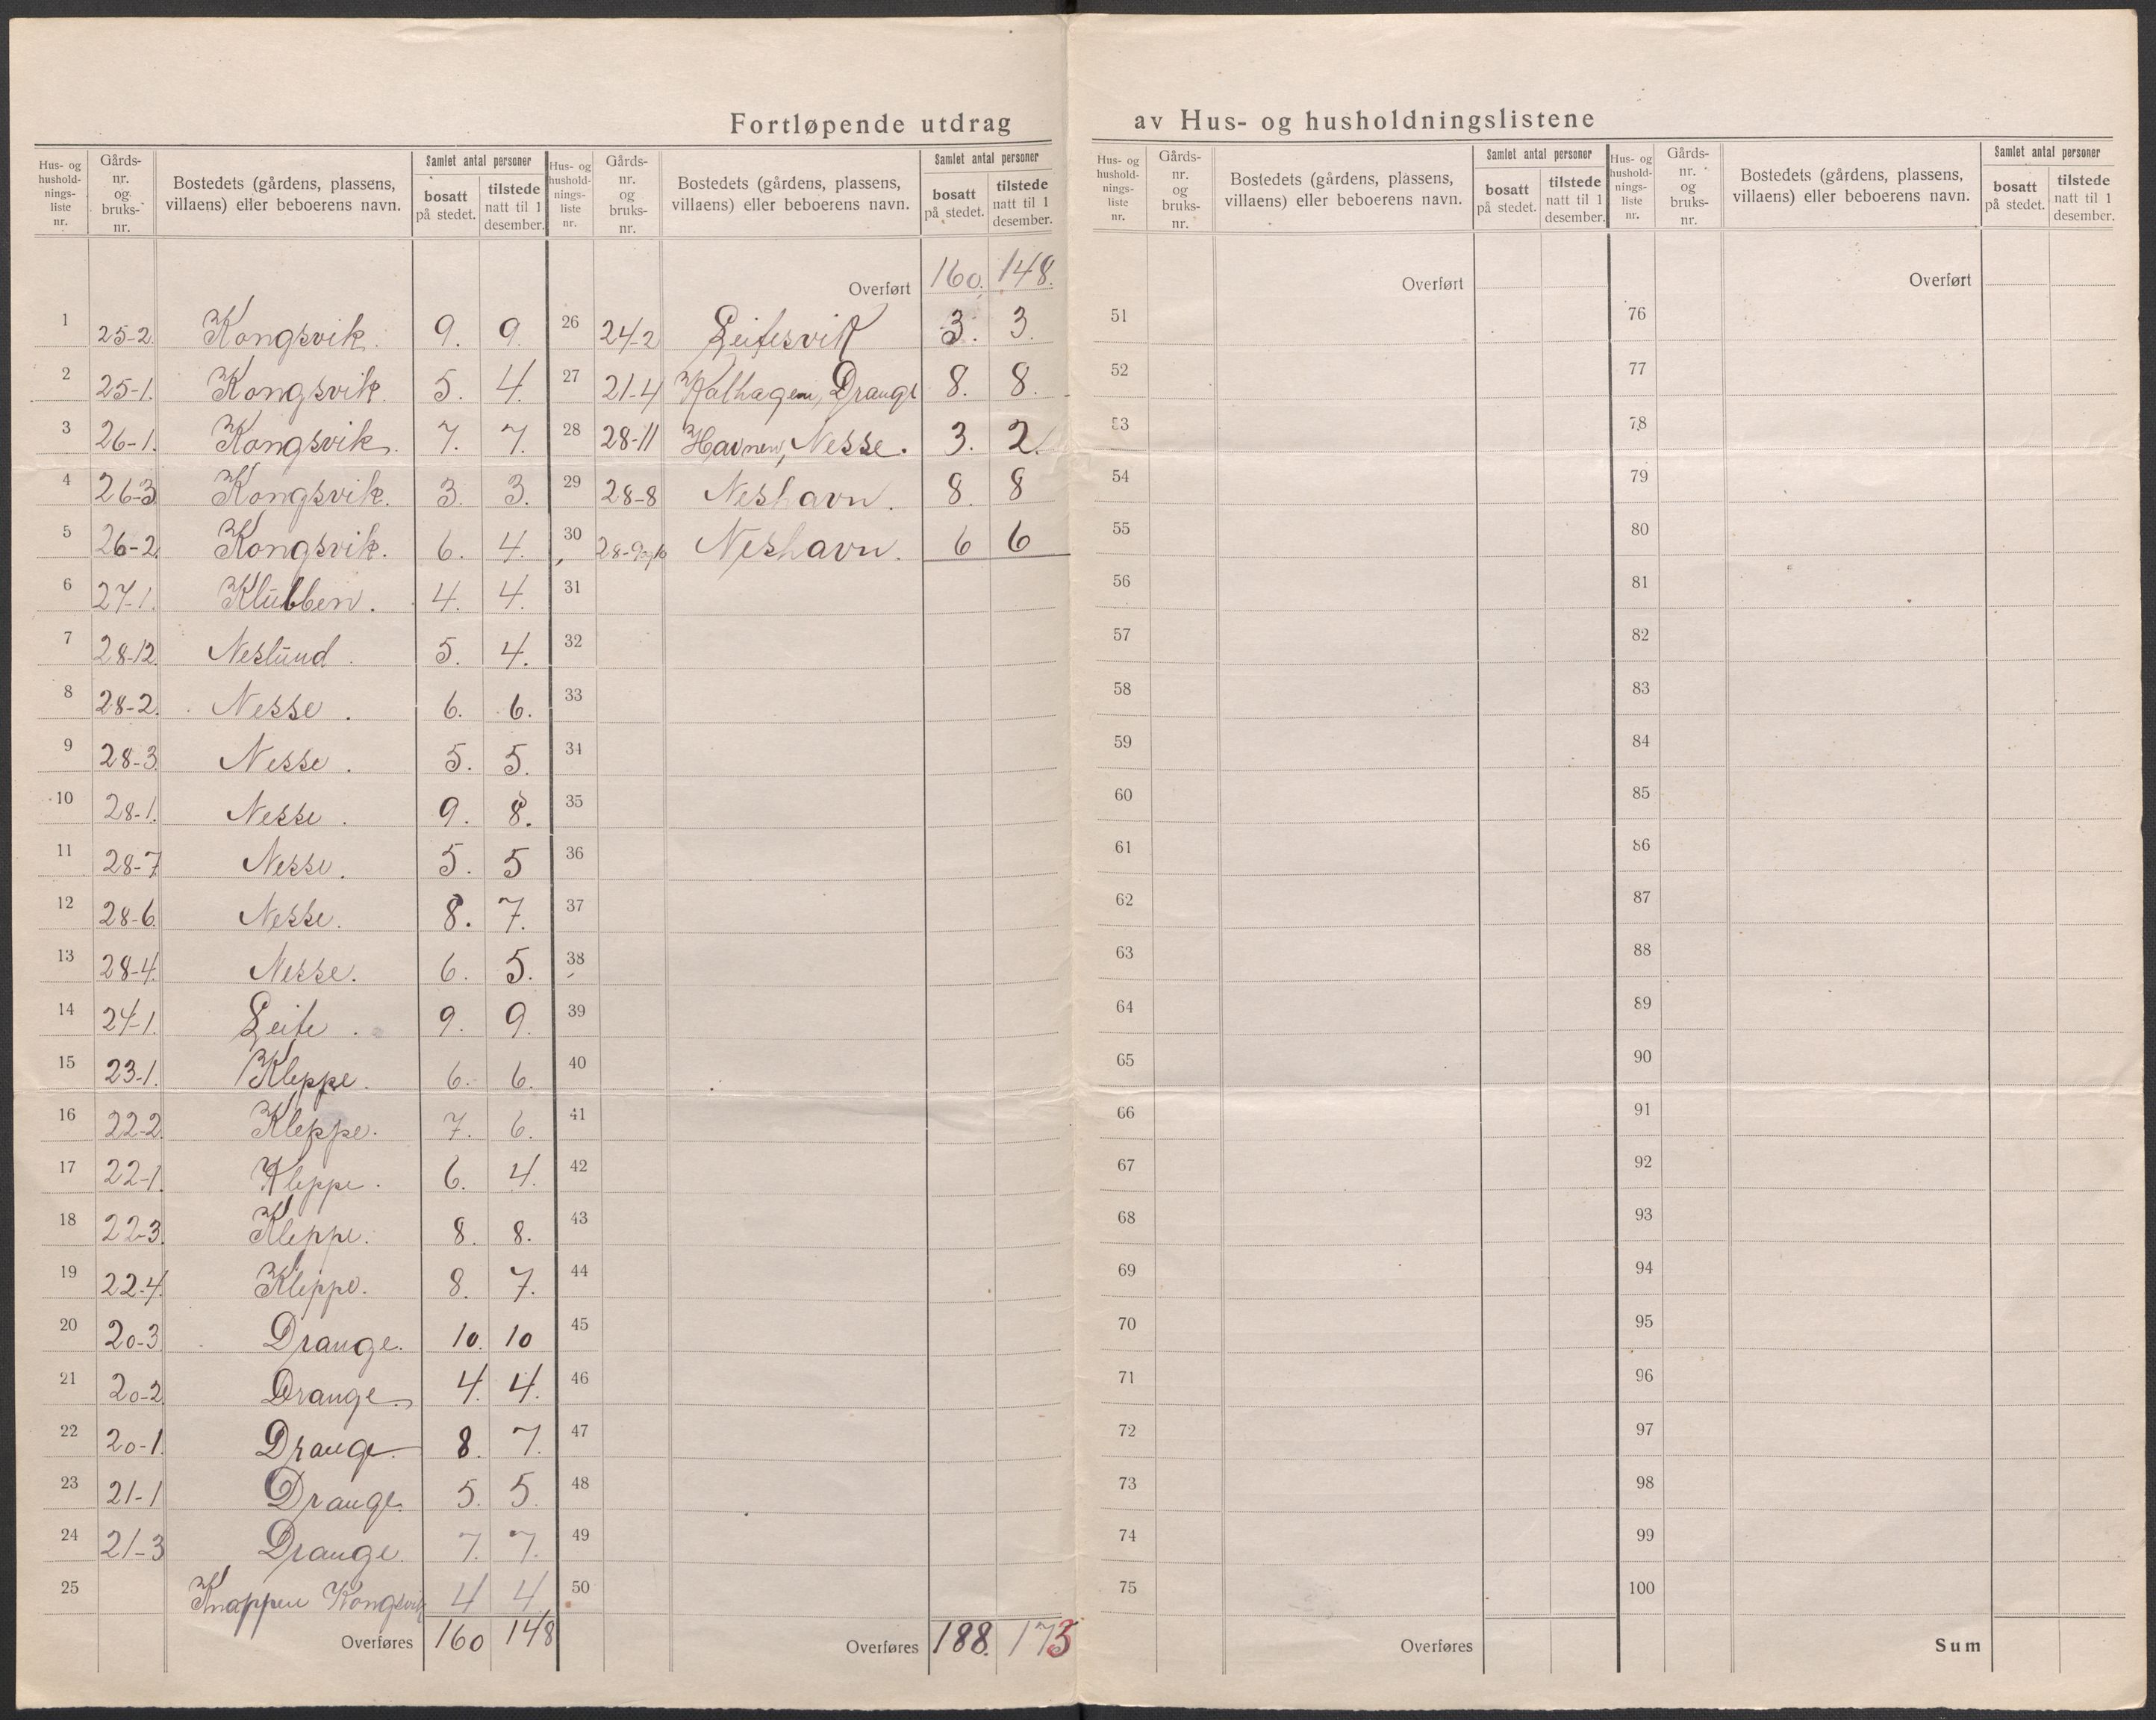 Fortløpende utdrag av Hus- og husholdningslistene
Hus- og hushold-nings-liste nr. | Gårds-nr. og bruks-nr. | Bostedets (gårdens, plassens, villaens) eller beboerens navn. | Samlet antal personer | bosatt på stedet. | tilstede natt til 1 desember.
1 25-2 Kongsvik. 9. 9.
2 25-1. Kongsvik. 5. 4.
3 26-1. Kongsvik. 7. 7.
4 26-3 Kongsvik. 3. 3.
5 26-2 Kongsvik. 6. 4.
6 27-1. Klubben. 4. 4.
7 28-12 Neslund. 5. 4.
8 28-2. Nesse. 6. 6.
9 28-3 Nesse. 5. 5.
10 28-1. Nesse. 9. 8.
11 28-7 Nesse. 5. 5
12 28-6. Nesse. 8. 7.
13 28-4. Nesse. 6. 5.
14 24-1. Leite. 9. 9.
15 23-1. Kleppe. 6. 6.
16 22-2 Kleppe. 7. 6.
17 22-1 Kleppe. 6. 4.
18 22-3. Kleppe. 8. 8.
19 22-4. Kleppe. 8. 7.
20 20-3 Drange. 10. 10
21 20-2 Drange. 4. 4.
22 20-1. Drange. 8. 7.
23 21-1 Drange. 5. 5.
24 21-3 Drange. 7. 7.
25 Knappen Kongsvik 4 4
Overføres 160 148
Hus- og hushold-nings-liste nr. | Gårds-nr. og bruks-nr. | Bostedets (gårdens, plassens, villaens) eller beboerens navn. | Samlet antal personer | bosatt på stedet. | tilstede natt til 1 desember.
Overført 160. 148.
26 24-2 Leitesvik 3. 3.
27 21-4 Kalhagen, Drange 8. 8.
28 28-11 Havnen, Nesse. 3. 2.
29 28-8 Neshavn. 8. 8
30 28-9og10 Neshavn. 6 6
31
32
33
34
35
36
37
38
39
40
41
42
43
44
45
46
47
48
49
50
Overføres 188. 175
Hus- og hushold-nings-liste nr. | Gårds-nr. og bruks-nr. | Bostedets (gårdens, plassens, villaens) eller beboerens navn. | Samlet antal personer | bosatt på stedet. | tilstede natt til 1 desember.
Overført
51
52
53
54
55
56
57
58
59
60
61
62
63
64
65
66
67
68
69
70
71
72
73
74
75
Overføres
Hus- og hushold-nings-liste nr. | Gårds-nr. og bruks-nr. | Bostedets (gårdens, plassens, villaens) eller beboerens navn. | Samlet antal personer | bosatt på stedet. | tilstede natt til 1 desember.
Overført
76
77
78
79
80
81
82
83
84
85
86
87
88
89
90
91
92
93
94
95
96
97
98
99
100
Sum